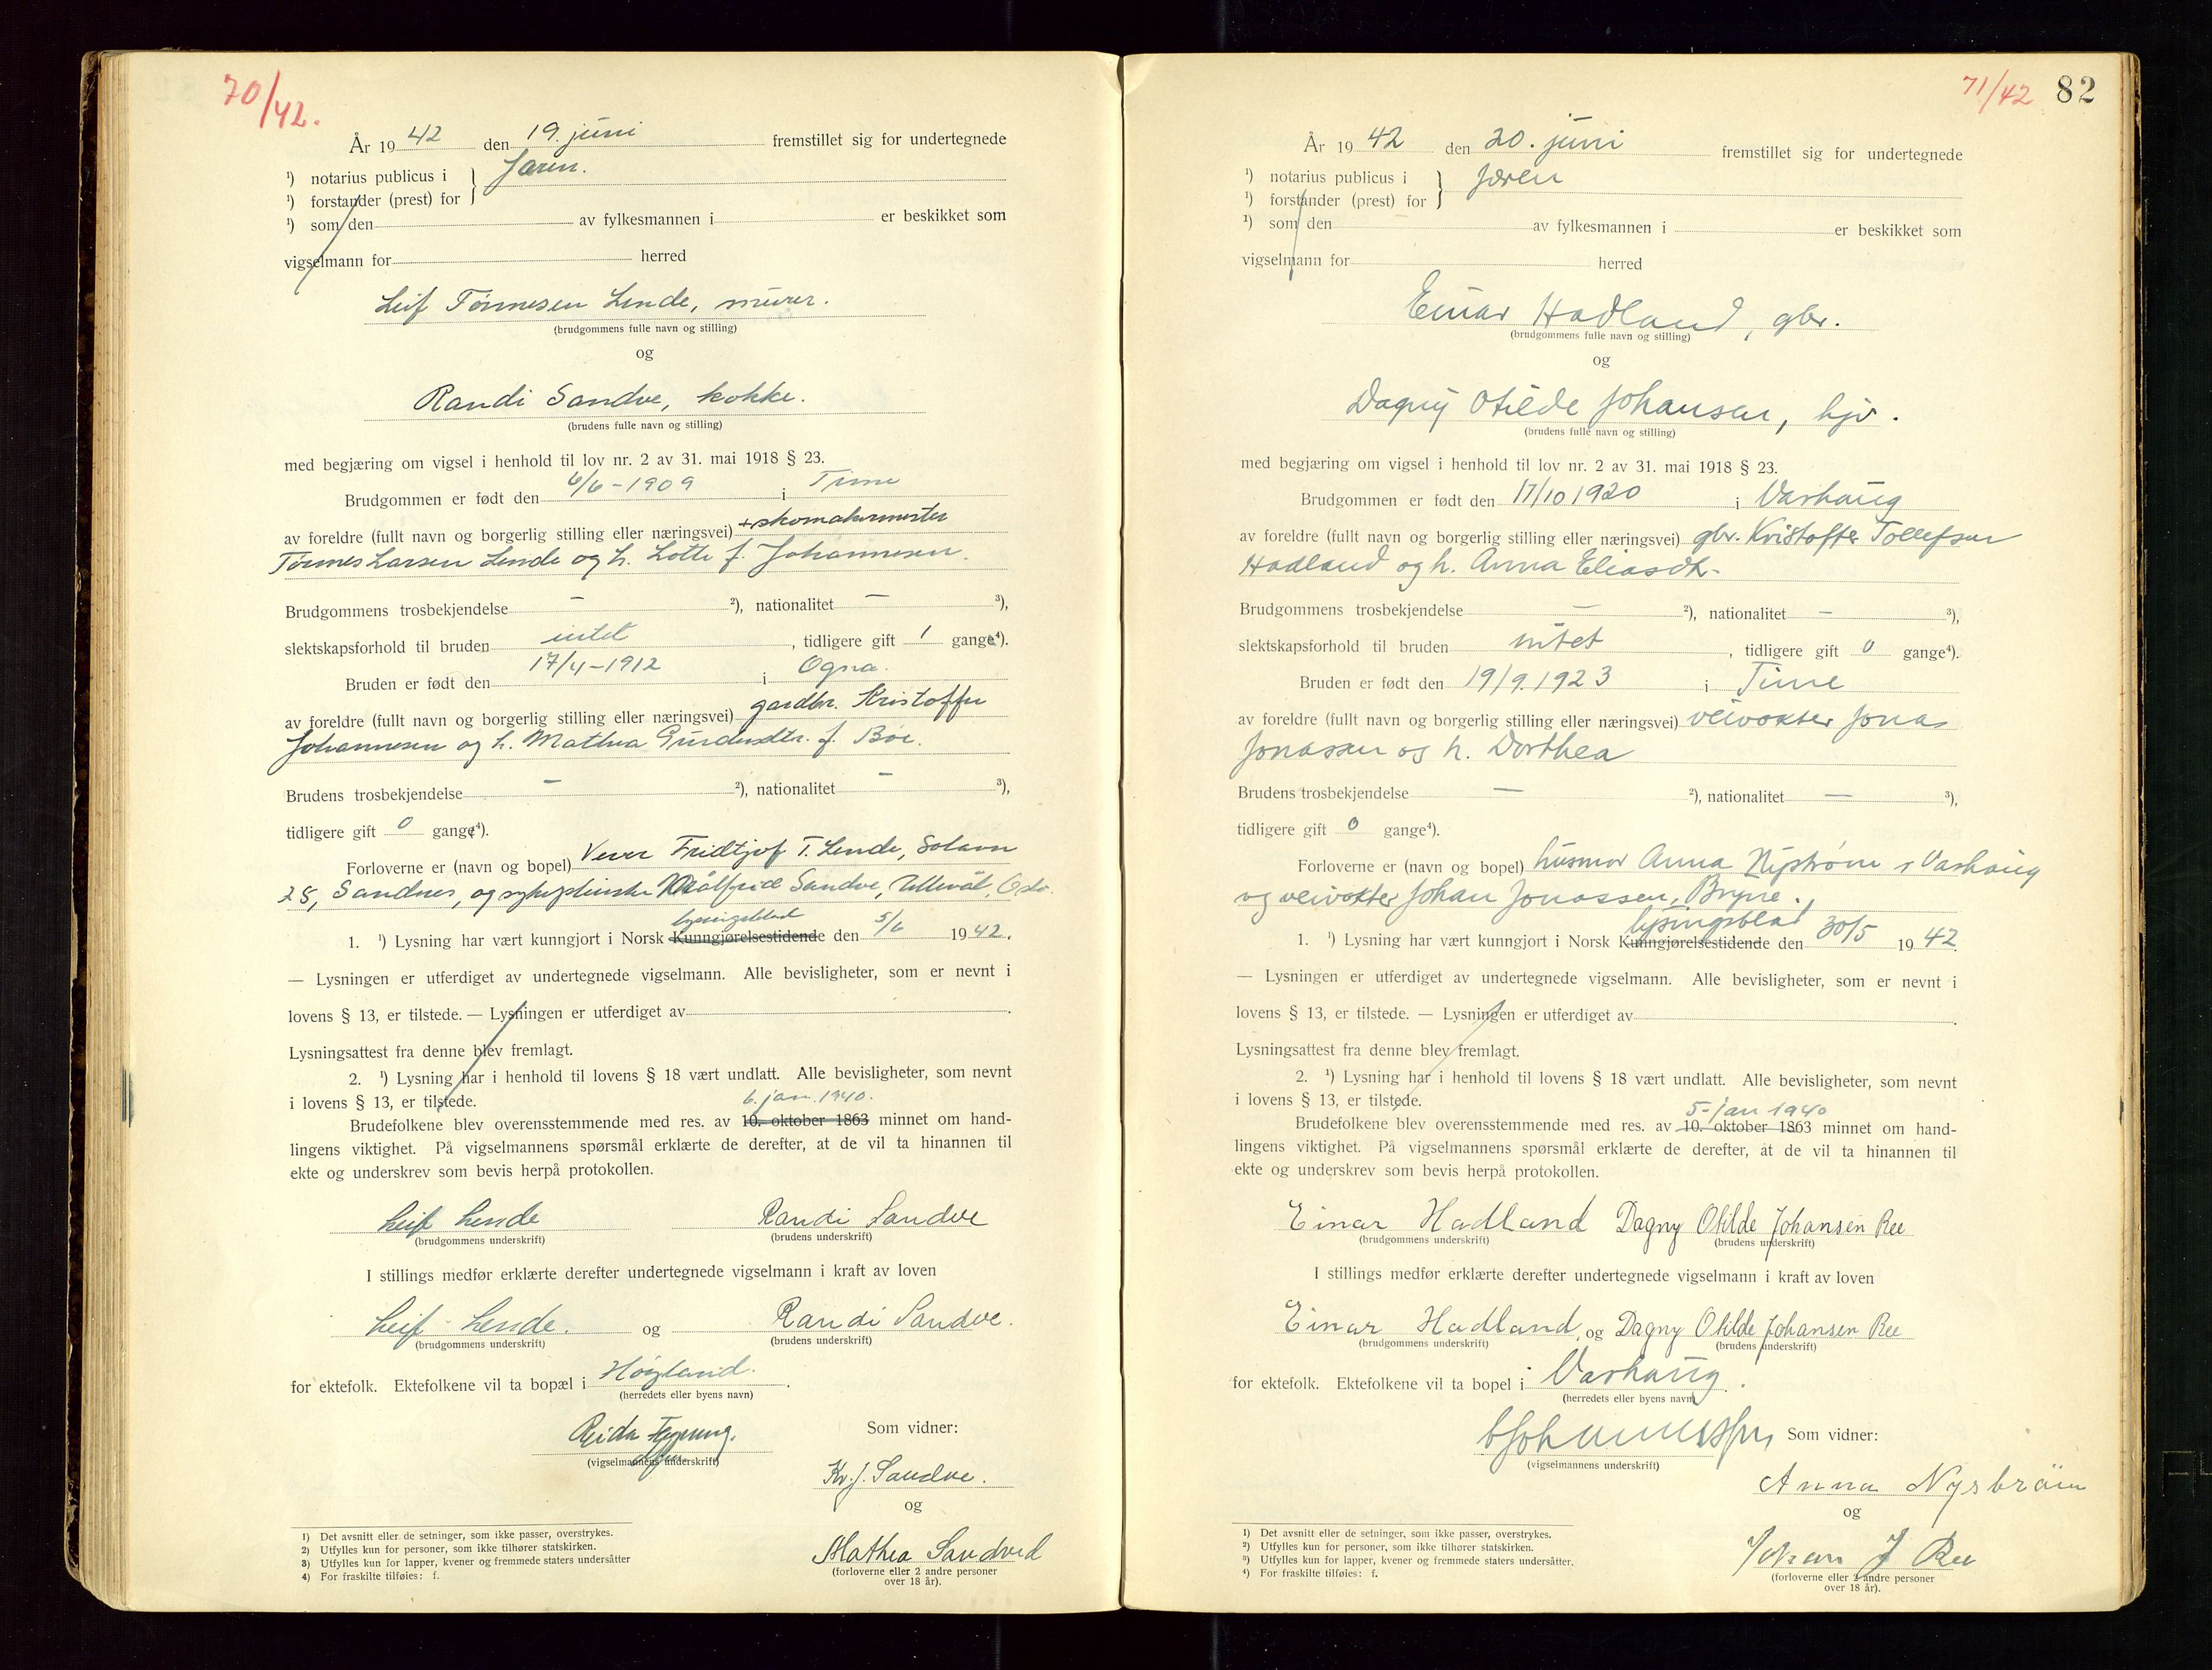 70/42.
År 1942 den 19. juni fremstillet sig for undertegnede
¹) notarius publicus i } Jæren.
¹) forstander (prest) for
¹) som den av fylkesmannen i er beskikket som
vigselmann for herred
Leif Tønnesen Lende, murer.
(brudgommens fulle navn og stilling)
og
Randi Sandve, kokke.
(brudens fulle navn og stilling)
med begjæring om vigsel i henhold til lov nr. 2 av 31. mai 1918 § 23.
Brudgommen er født den 6/6-1909 i Time
av foreldre (fullt navn og borgerlig stilling eller næringsvei) +skomakermester
Tønnes Larsen Lende og h. Lotte f. Johannesen.
Brudgommens trosbekjendelse — ²), nationalitet — ³),
slektskapsforhold til bruden intet, tidligere gift 1 gange⁴).
Bruden er født den 17/4-1912 i Ogna.
av foreldre (fullt navn og borgerlig stilling eller næringsvei) gardbr. Kristoffer
Johannesen og h. Mathea f. Bøe.
Brudens trosbekjendelse — ²), nationalitet — ³),
tidligere gift 0 gange⁴).
Forloverne er (navn og bopel) Vever Fridtjof T. Lende, Solavn
28, Sandnes, og sykepleierske Målfrid Sandve, Ullevål, Oslo.
lysingsblad
1. ¹) Lysning har vært kunngjort i Norsk Kunngjørelsestidende den 5/6 1942.
— Lysningen er utferdiget av undertegnede vigselmann. Alle bevisligheter, som er nevnt i
lovens § 13, er tilstede. — Lysningen er utferdiget av .
Lysningsattest fra denne blev fremlagt.
2. ¹) Lysning har i henhold til lovens § 18 vært undlatt. Alle bevisligheter, som nevnt
i lovens § 13, er tilstede.
6. jan. 1940.
Brudefolkene blev overensstemmende med res. av 10. oktober 1863 minnet om hand-
lingens viktighet. På vigselmannens spørsmål erklærte de derefter, at de vil ta hinannen til
ekte og underskrev som bevis herpå protokollen.
Leif Lende Randi Sandve
(brudgommens underskrift) (brudens underskrift)
I stillings medfør erklærte derefter undertegnede vigselmann i kraft av loven
Leif Lende. og Randi Sandve.
(brudgommens underskrift) (brudens underskrift)
for ektefolk. Ektefolkene vil ta bopæl i Høyland.
(herredets eller byens navn)
Som vidner:
(vigselmannens underskrift)
Kr. J. Sandve.
og
Mathea Sandved
(forloverne eller 2 andre personer
over 18 år).
1) Det avsnitt eller de setninger, som ikke passer, overstrykes.
2) Utfylles kun for personer, som ikke tilhører statskirken.
3) Utfylles kun for lapper, kvener og fremmede staters undersåtter
4) For fraskilte tilføies: f.
71/42 82
År 1942 den 20. juni fremstillet sig for undertegnede
¹) notarius publicus i } Jæren
¹) forstander (prest) for
¹) som den av fylkesmannen i er beskikket som
vigselmann for herred
Einar Hadland, gbr.
(brudgommens fulle navn og stilling)
og
Dagny Otilde Johansen, hjv.
(brudens fulle navn og stilling)
med begjæring om vigsel i henhold til lov nr. 2 av 31. mai 1918 § 23.
Brudgommen er født den 17/10 1920 i Varhaug
av foreldre (fullt navn og borgerlig stilling eller næringsvei) gbr. Kristoffer Tollefsen
Hadland og h. Anna Eliasdtr.
Brudgommens trosbekjendelse — ²), nationalitet — ³),
slektskapsforhold til bruden intet, tidligere gift 0 gange⁴).
Bruden er født den 19/9.1923 i Time
av foreldre (fullt navn og borgerlig stilling eller næringsvei) veivokter Jonas
Jonassen og h. Dorthea
Brudens trosbekjendelse — ²), nationalitet — ³),
tidligere gift 0 gange⁴).
Forloverne er (navn og bopel) husmor Anna Nystrøm, Varhaug
og veivokter Johan Jonassen, Bryne.
lysingsblad
1. ¹) Lysning har vært kunngjort i Norsk Kunngjørelsestidende den 30/5 1942.
— Lysningen er utferdiget av undertegnede vigselmann. Alle bevisligheter, som er nevnt i
lovens § 13, er tilstede. — Lysningen er utferdiget av .
Lysningsattest fra denne blev fremlagt.
2. ¹) Lysning har i henhold til lovens § 18 vært undlatt. Alle bevisligheter, som nevnt
i lovens § 13, er tilstede.
5-jan 1940
Brudefolkene blev overensstemmende med res. av 10. oktober 1863 minnet om hand-
lingens viktighet. På vigselmannens spørsmål erklærte de derefter, at de vil ta hinannen til
ekte og underskrev som bevis herpå protokollen.
Einar Hadland Dagny Otilde Johansen Ree
(brudgommens underskrift) (brudens underskrift)
I stillings medfør erklærte derefter undertegnede vigselmann i kraft av loven
Einar Hadland, og Dagny Otilde Johansen Ree
(brudgommens underskrift) (brudens underskrift)
for ektefolk. Ektefolkene vil ta bopel i Varhaug.
(herredets eller byens navn)
Som vidner:
(vigselmannens underskrift)
Anna Nystrøm
og
Johan J Ree
(forloverne eller 2 andre personer
over 18 år).
1) Det avsnitt eller de setninger, som ikke passer, overstrykes.
2) Utfylles kun for personer, som ikke tilhører statskirken.
3) Utfylles kun for lapper, kvener og fremmede staters undersåtter.
4) For fraskilte tilføies: f.